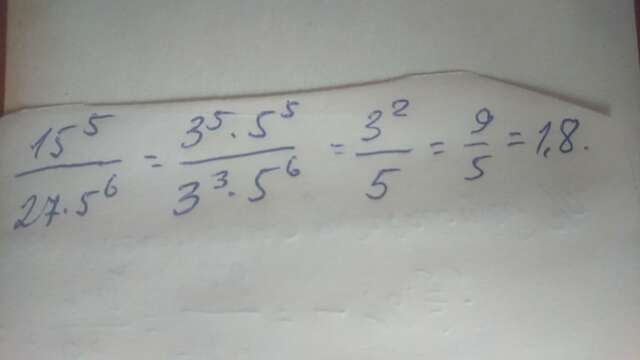 15⁵/27·5⁶ = 3⁵·5⁵/3³·5⁶ = 3²/5 = 9/5 = 1,8.